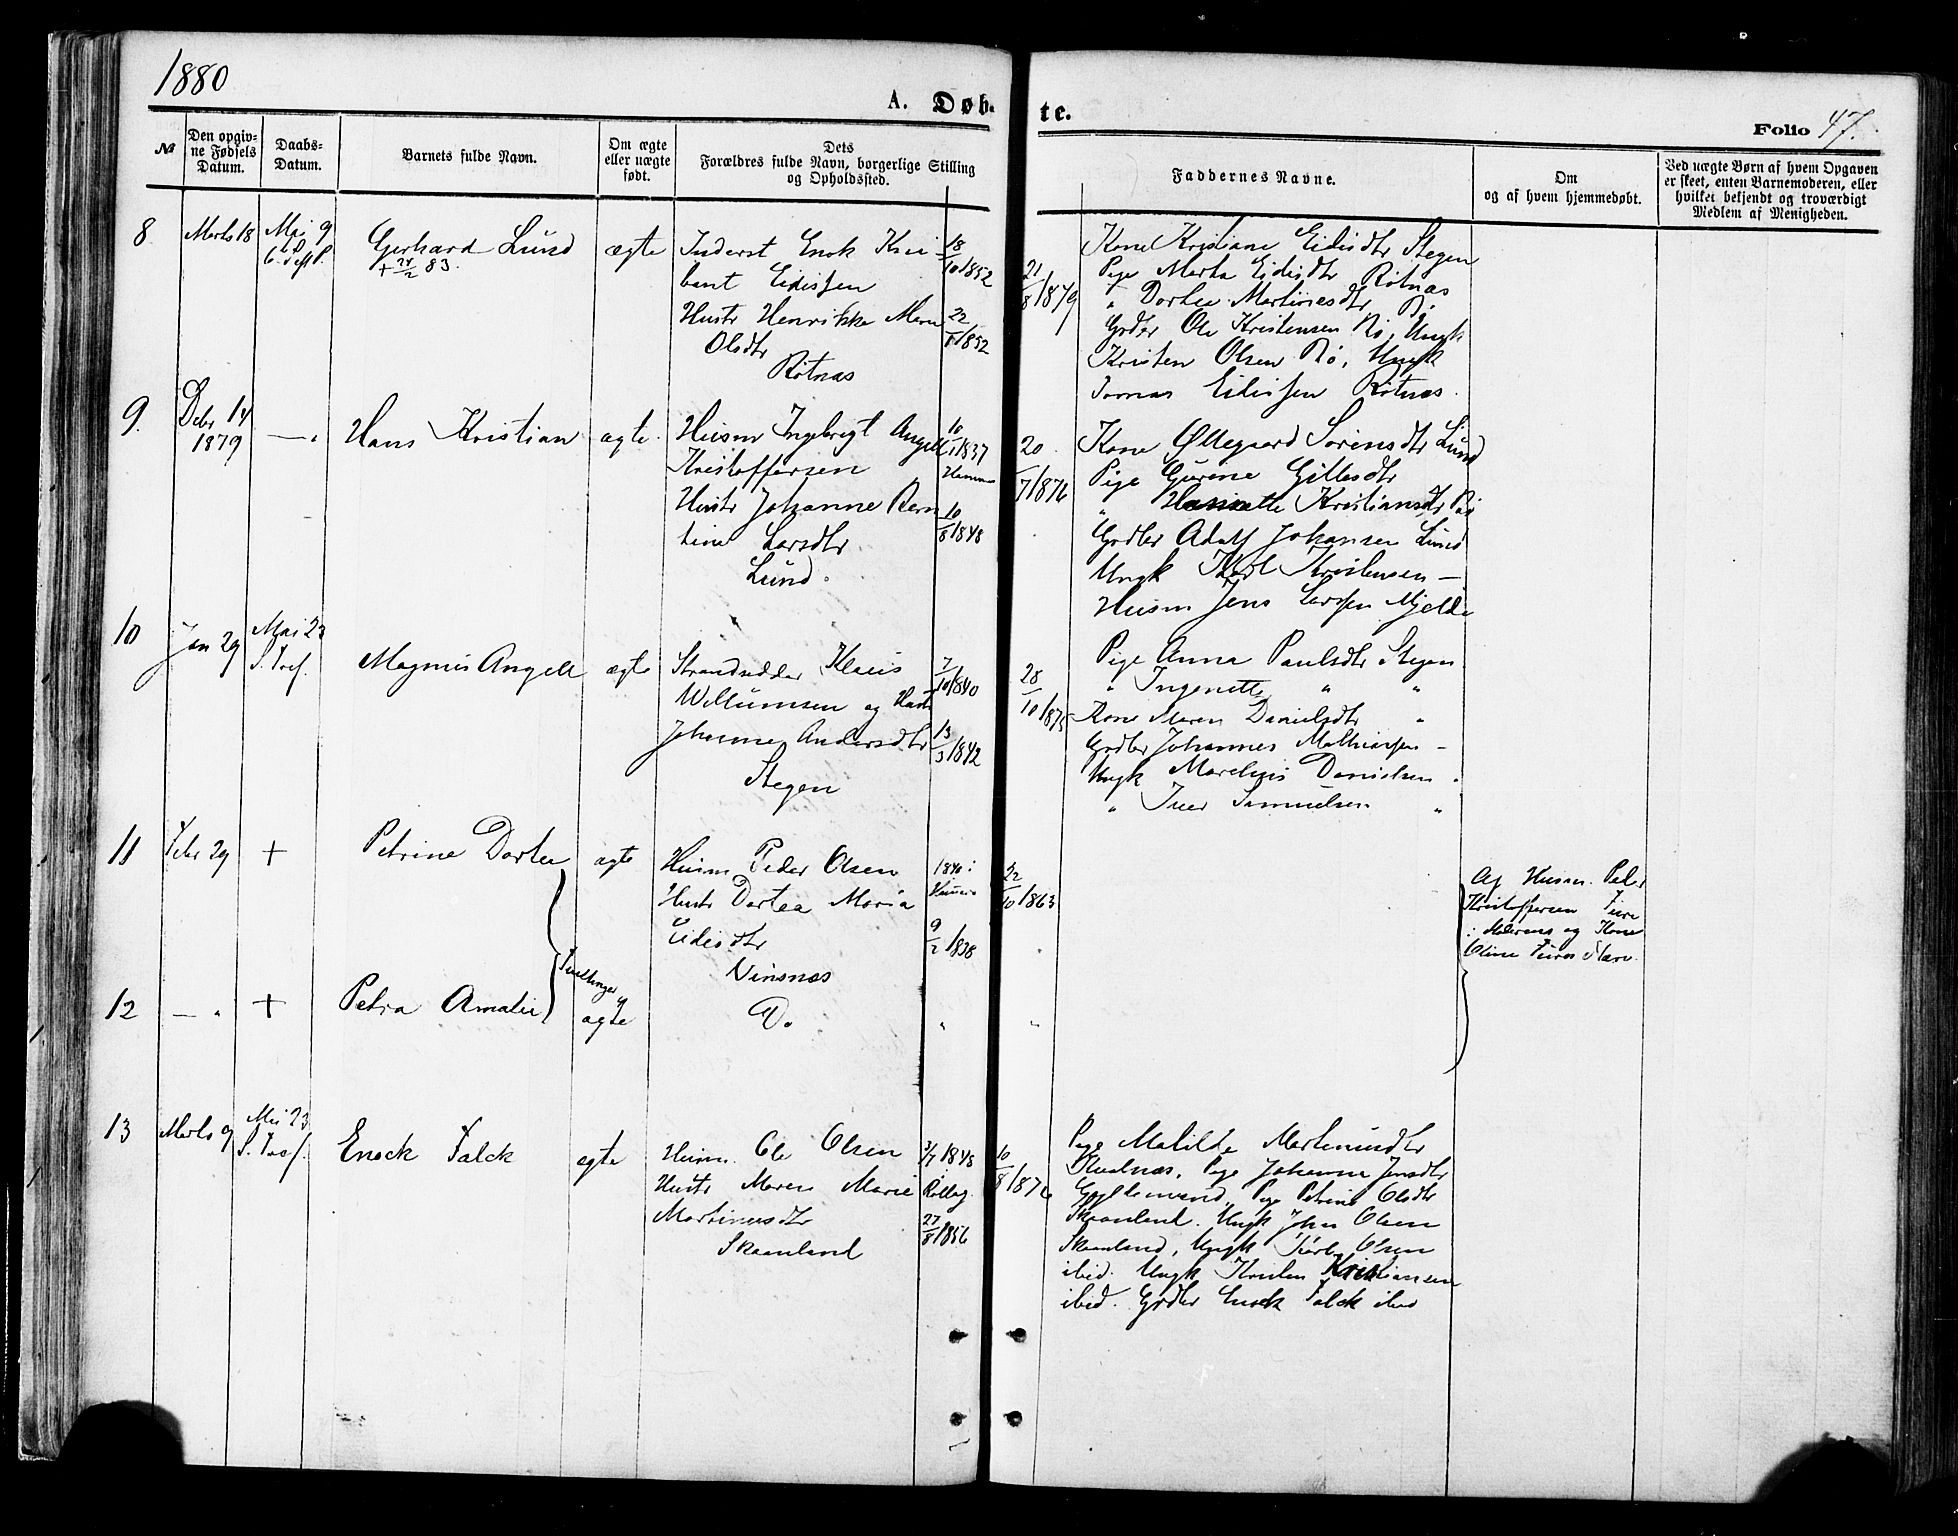 1880
A. Døb-
te.
Folio 47.
№
Den opgiv-
ne Fødsels
Datum.
Daabs-
Datum.
Barnets fulde Navn.
Om ægte
eller uægte
født.
Dets
Forældres fulde Navn, borgerlige Stilling
og Opholdssted.
Faddernes Navne.
Om
og af hvem hjemmedøbt.
Ved uægte Børn af hvem Opgaven
er skeet, enten Barnemoderen, eller
hvilket bekjendt og troværdigt
Medlem af Menigheden.
8.
Marts 18
Mai 9
6. S. eft P.
Gerhard Lund
+ 24/2 83.
ægte
Inderst Enok Kri
bant Eidissen
Hustr Henrikke Mern
Olsdtr
Rotnæs
18/10 1852
22/8 1852
21/8 1879
Kone Kristiane Eidisdtr Stegen
Pige Marta Eidisdtr Rotnæs
" Dortea Martinesdtr Rö.
Grdbr Ole Kristensen Rö, Ungk
Kristen Olsen Rö, Ungk
Jornas Eidissen Rotnæs.
9.
Debr 14
1879
— "
Hans Kristian
ægte.
Husm Ingebrigt Angell
Kristoffersen
Hustr Johanne Bern
tine Larsdtr
Lund.
10/1 1837
10/8 1848
20/7 1876
Kone Øllegaard Sørensdtr Lund
Pige Gurine Gillesdtr
" Kristiansdtr
Grdbr Adolf Johansen Lund
Ungk Karl Kristensen —
Husm Jens Larssen Mjelde
10
Jan 29
Mai 23
S. Tref.
Magnus Angell
ægte
Strandsidder Klaus
Willumsen og Hustr
Johanne Andersdtr
Stegen
7/10 1840
13/3 1842
28/10 1875
Pige Anna Paulsdtr Stegen
" Ingenette " "
Kone Maren Danielsdtr "
Grdbr Johannes Mathiassen –
Ungk Marelius Danielsen "
" Iver Samuelsen "
11
Febr 29
+
Petrine Dortea
ægte
Husm Peder Olsen
Hustr Dortea Maria
Eidisdtr
Vinsnæs
1840 i
9/2 1838
22/10 1863
Af Husm. Peder
Kristoffersen
og Kone
Oline
Tvillinger
12
— "
+
Petra Amalie
ægte
Do
"
"
13
Marts 9
Mai 23
S. Tref.
Enock Falck
ægte
Husm. Ole Olsen
Hustr Maren Marie
Martinusdtr
Skaanland
3/7 1848
Rollag
27/8 1856
10/8 1876
Pige Matilde Martinusdtr
Pige Johanne Jensdtr
Pige Petrine Olsdtr
Skaanland. Ungk John Olsen
Skaanland, Ungk Olsen
ibid. Ungk Kristen Kristiansen
ibid. Grdbr Enock Falck ibid